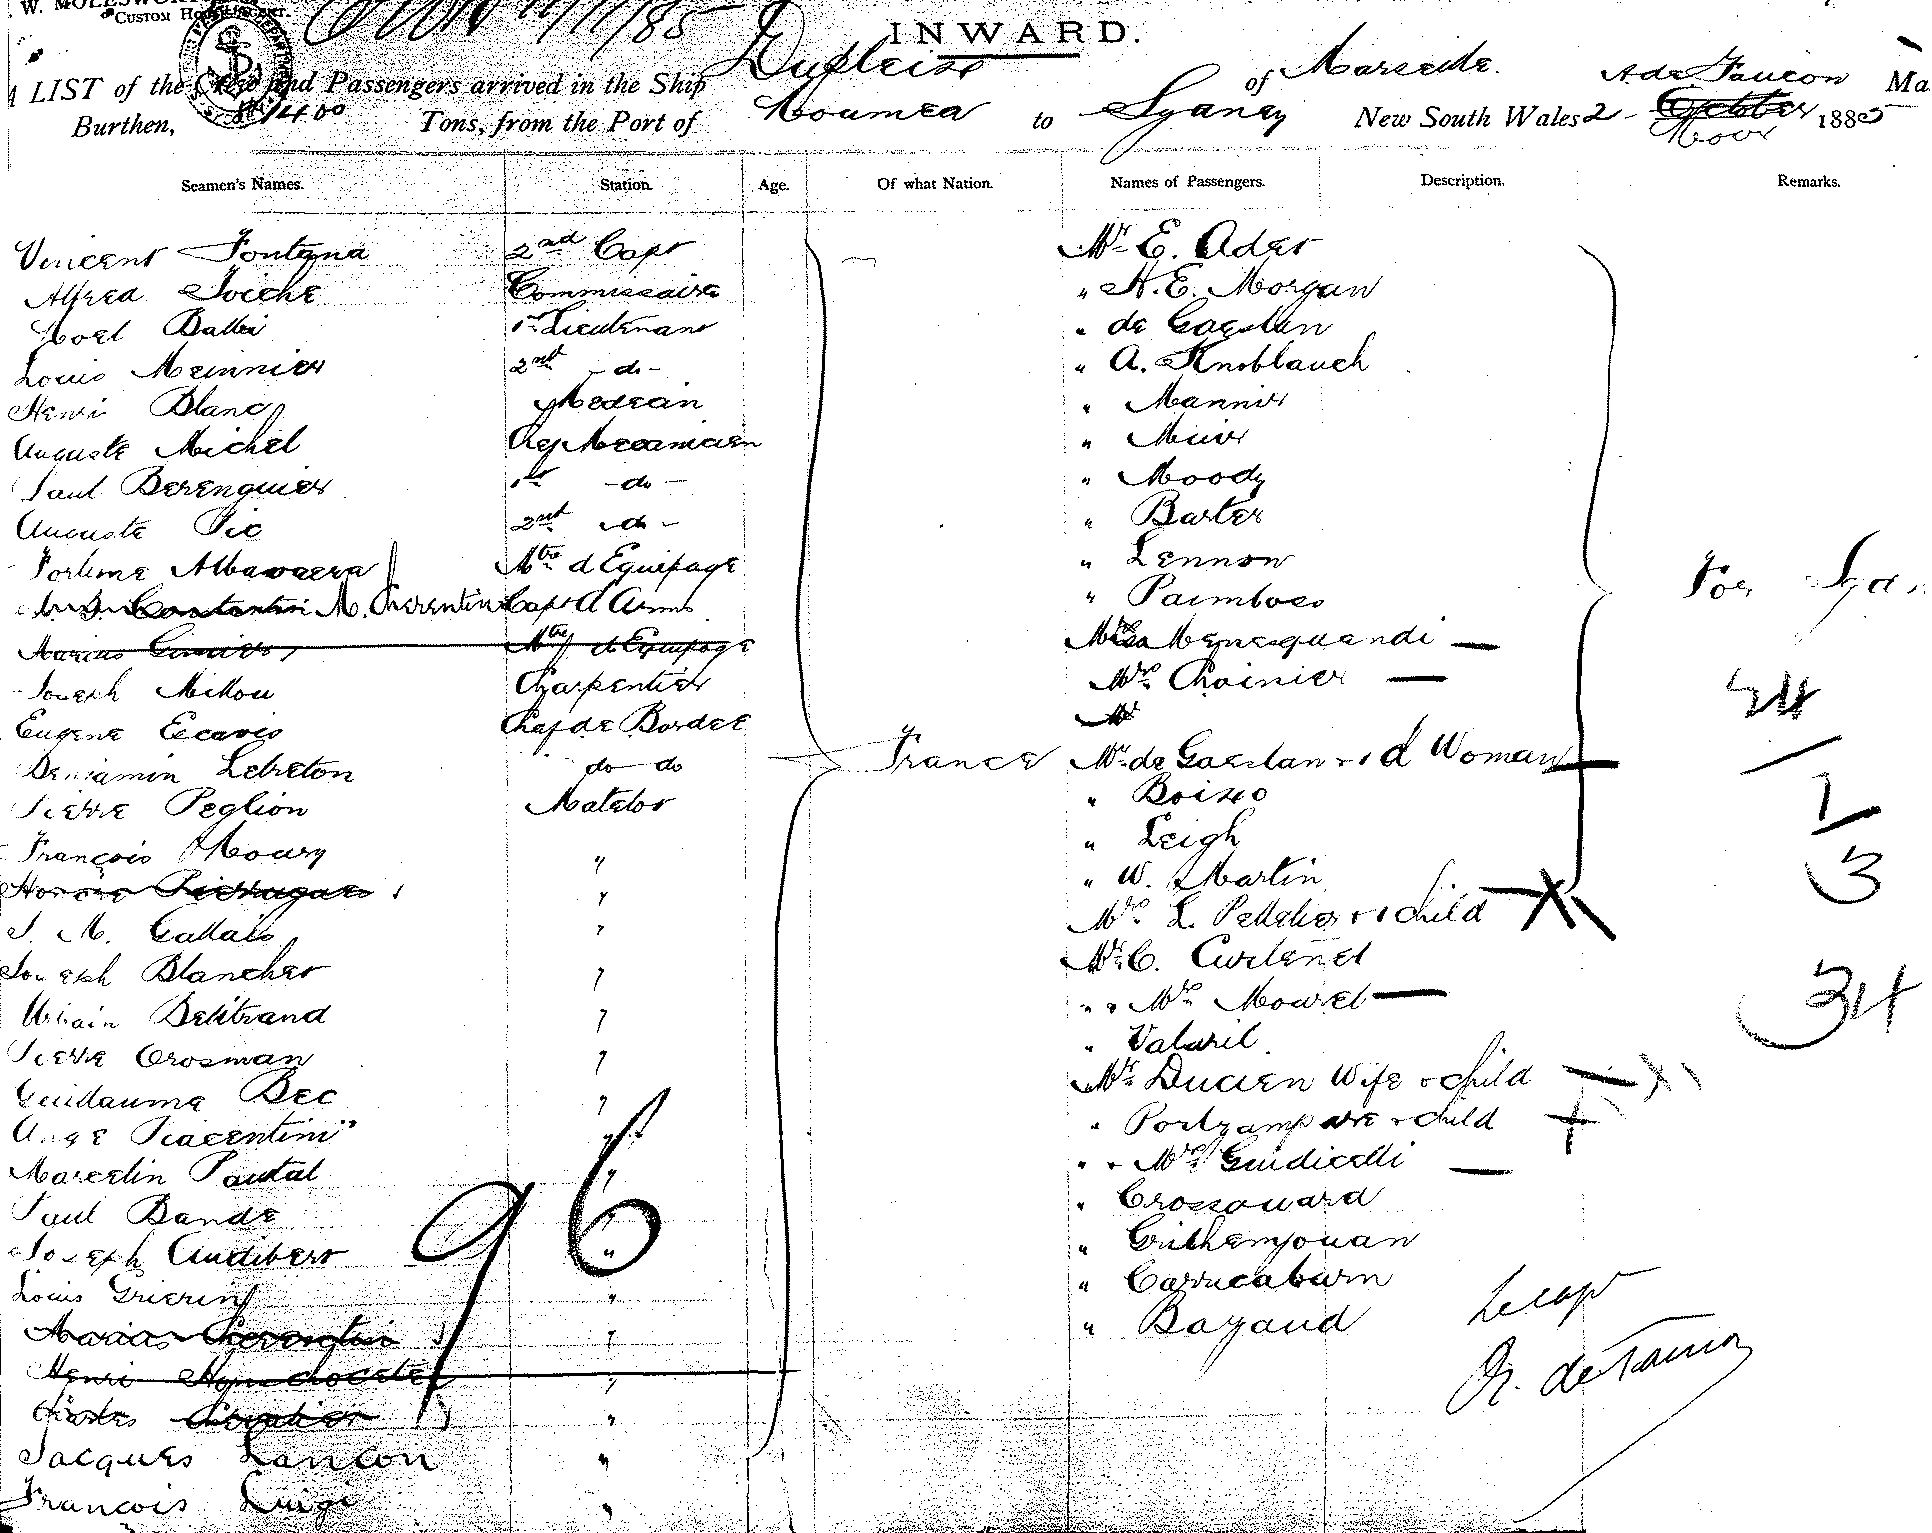 W. MOLESWORTH
CUSTOM HOUSE
11/85
INWARD.
A LIST of the Crew and Passengers arrived in the Ship Dupleix of Marseille. A de Faucon Ma
Burthen, 1400 Tons, from the Port of Noumea to Sydney New South Wales 2 - October Novr 1885
Seamen's Names. Station. Age. Of what Nation. Names of Passengers. Description. Remarks.
Vincent Fontana 2nd Capt Mr. E. Ader
Alfred Commissaire " H. E. Morgan
Noel 1st Lieutenant " de Gaeslan
Louis Meinnier 2nd - do - " A. Knoblauch
Henri Blanc Medecin " Mannier
Auguste Michel Mecanicien " Muir
Paul Berenguier 1st - do - " Moody
Auguste Pic 2nd - do - " Barter
Fortune Mtre d'Equipage " Lennon
Constantin M. Capt d'Arms " Paimboeo For
Marius Mtre d'Equipage Menesquandi
Joseph Millou Charpentier Mrs. Choinier 24
Eugene Escavis Chef de Bordee
Benjamin Lebreton do do France Mr. de Gaeslan Woman 1
Pierre Peglion Matelot " Boixo
François Moury " " Leigh 3
Honoré " " W. Martin
J. M. Gallais " Mrs. L. Pelletier + 1 child
Joseph Blancher " Mr. C. Curtenel 34
Urbain Bertrand " " " Mrs. Mouret
Pierre Crosman " " Valaril
Guillaume Bec " Mr. Ducien Wife & child
Ange Piacentini " " child
Marcelin Pautal " " " Mrs. Guidicelli
Paul Bande " " Crossouard
Joseph Audibert " 96 " Grithenjouan
Louis " " Carrucaburn
Marius " " Bayaud Le capt
Henri " A. de Faucon
Charles "
Jacques Lancon "
Francois Luigi "